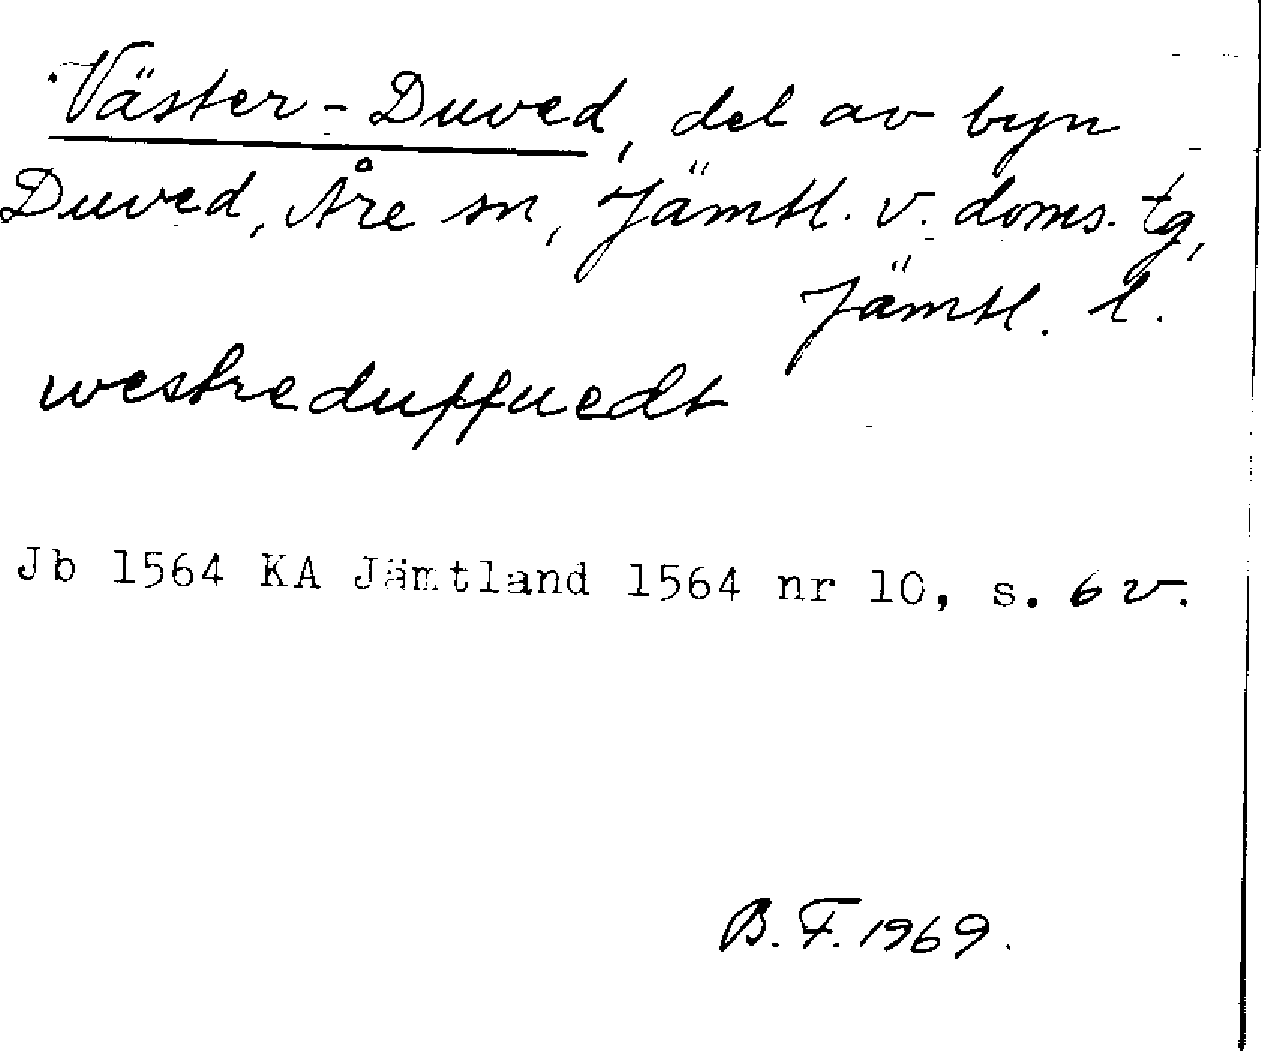 Väster-Duved, del av byn
Duved, Åre sn, Jämtl. v. doms. tg,
Jämtl. l.
westreduffuedt
Jb 1564 KA Jämtland 1564 nr 10, s. 6v.
B. F. 1969.